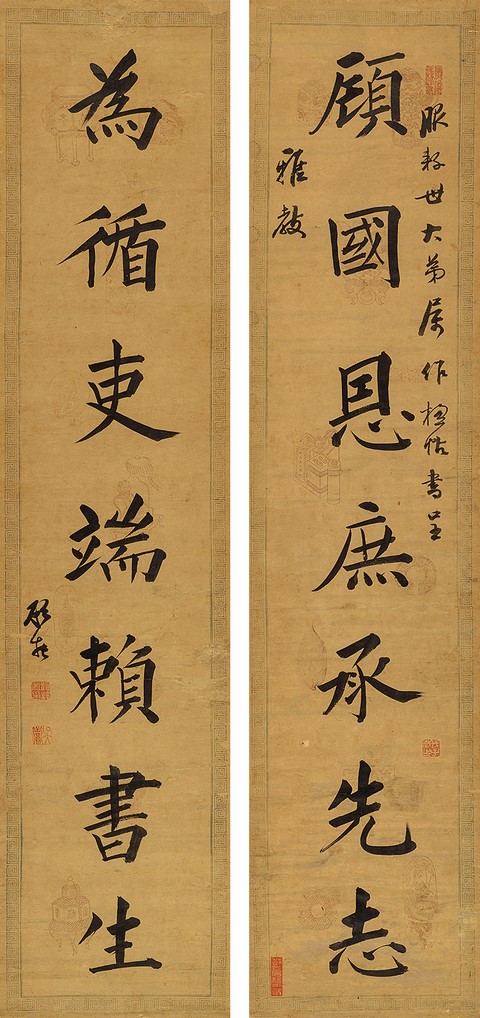 世大弟屬作楹帖書呈
顧國恩庶承先志
雅教
為循吏端賴書生